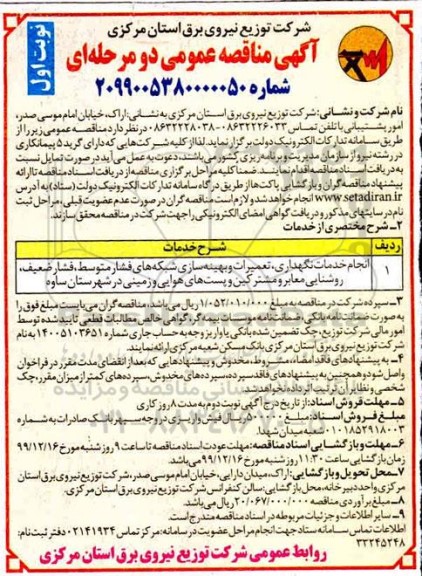 شرکت توزیع نیروی برق استان مرکزی
آگهی مناقصه عمومی دو مرحله‌ای
شماره ۲۰۹۹۰۰۵۳۸۰۰۰۰۰۵۰
نوبت اول
نام شرکت و نشانی: شرکت توزیع نیروی برق استان مرکزی به نشانی: اراک، خیابان امام موسی صدر،
امور پشتیبانی با تلفن تماس ۰۸۶۳۲۲۲۶۰۳۳ - ۰۸۶۳۲۲۲۸۰۳۸ در نظر دارد مناقصه عمومی زیر را از
طریق سامانه تدارکات الکترونیک دولت برگزار نماید. لذا از کلیه شرکت‌هایی که دارای گرید ۵ پیمانکاری
در رشته نیرو از سازمان مدیریت و برنامه ریزی کشور می‌باشند، دعوت به عمل می‌آید در صورت تمایل نسبت
به دریافت اسناد مناقصه اقدام نمایند. ضمنا کلیه مراحل برگزاری مناقصه از دریافت اسناد مناقصه تا ارائه
پیشنهاد مناقصه گران و بازگشایی پاکت‌ها از طریق درگاه سامانه تدارکات الکترونیک دولت (ستاد) به آدرس
www.setadiran.ir انجام خواهد شد و لازم است مناقصه گران در صورت عدم عضویت قبلی، مراحل ثبت
نام در سایتهای مذکور و دریافت گواهی امضای الکترونیکی را جهت شرکت در مناقصه محقق سازند.
۲- شرح مختصری از خدمات
ردیف شرح خدمات
۱ انجام خدمات نگهداری، تعمیرات و بهینه سازی شبکه‌های فشار متوسط، فشار ضعیف،
روشنایی معابر و مشترکین و پست‌های هوایی و زمینی در شهرستان ساوه
۳- سپرده شرکت در مناقصه به مبلغ ۱/۰۵۲/۰۱۰/۰۰۰ ریال می‌باشد، مناقصه گران می‌بایست مبلغ فوق را
به صورت ضمانت نامه بانکی، ضمانت نامه موسسات بیمه گر، گواهی خالص مطالبات قطعی تایید شده توسط
امور مالی شرکت توزیع، چک تضمین شده بانکی یا واریز وجه به حساب جاری شماره ۱۴۰۰۵۱۰۳۶۵۱ به نام
شرکت توزیع نیروی برق استان مرکزی بانک مسکن شعبه مرکزی ارائه نمایند.
۴- به پیشنهادهای فاقد امضاء، مشروط، مخدوش و پیشنهادهایی که بعد از انقضای مدت مقرر در فراخوان
واصل شود و همچنین به پیشنهادهای فاقد سپرده، سپرده‌های مخدوش، سپرده‌های کمتر از میزان مقرر، چک
شخصی و نظایر آن ترتیب اثر داده نخواهد شد.
۵- مهلت فروش اسناد: از تاریخ درج آگهی نوبت دوم به مدت ۸ روز کاری
مبلغ فروش اسناد: مبلغ ریال طی فیش واریزی در وجه سپهر بانک صادرات به شماره
۰۱۰۱۸۵۲۹۱۸۰۰۳
۶- مهلت و بازگشایی اسناد مناقصه: مهلت عودت اسناد مناقصه تا ساعت ۹ روز شنبه مورخ ۹۹/۱۲/۱۶
زمان بازگشایی ساعت ۱۱:۳۰ روز شنبه مورخ ۹۹/۱۲/۱۶ می‌باشد.
۷- محل تحویل و بازگشایی: اراک، میدان دارایی، خیابان امام موسی صدر، شرکت توزیع نیروی برق استان
مرکزی واحد دبیرخانه، محل بازگشایی: سالن کنفرانس شرکت توزیع نیروی برق استان مرکزی.
۸- مبلغ برآوردی مناقصه ۲۰/۰۶۷/۰۰۰/۰۰۰ ریال می‌باشد.
۹- سایر اطلاعات و جزئیات مربوطه در اسناد مناقصه مندرج است.
اطلاعات تماس سامانه ستاد جهت انجام مراحل عضویت در سامانه: مرکز تماس ۰۲۱۴۱۹۳۴ دفتر ثبت نام:
۳۳۲۴۵۲۴۸
روابط عمومی شرکت توزیع نیروی برق استان مرکزی